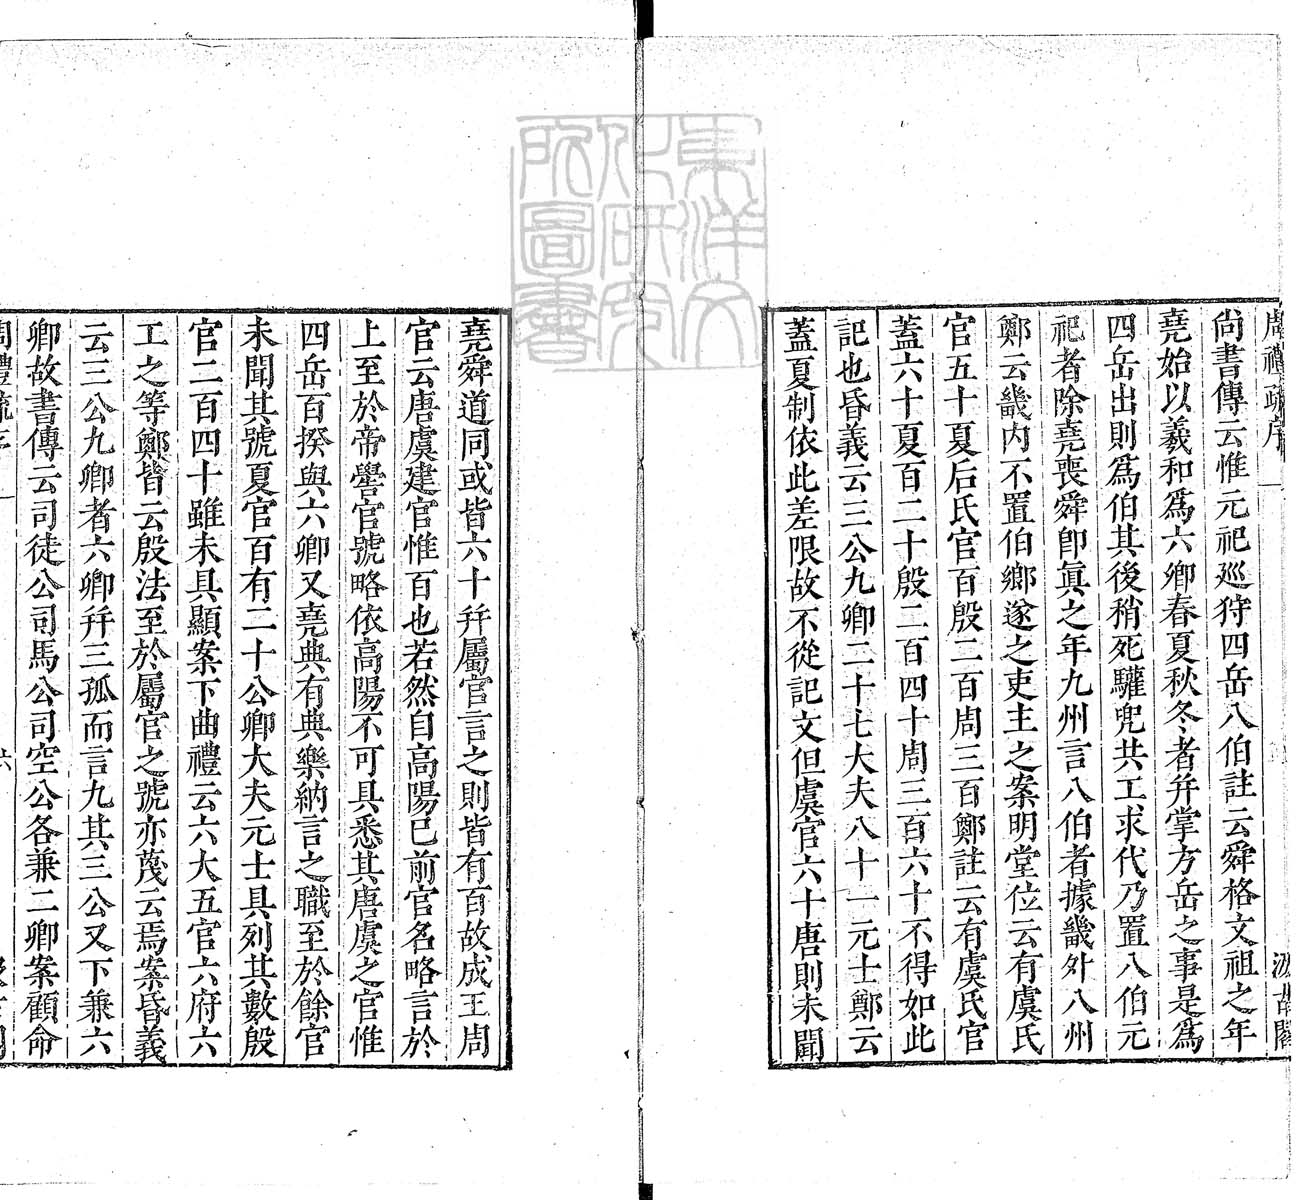 周禮疏序
汲古閣
尚書傳云惟元祀巡狩四岳八伯註云舜格文祖之年
堯始以羲和爲六卿春夏秋冬者幷掌方岳之事是爲
四岳出則爲伯其後稍死驩兜共工求代乃置八伯元
祀者除堯喪舜卽眞之年九州言八伯者據畿外八州
鄭云畿內不置伯鄉遂之吏主之案明堂位云有虞氏
官五十夏后氏官百殷二百周三百鄭註云有虞氏官
蓋六十夏百二十殷二百四十周三百六十不得如此
記也昏義云三公九卿二十七大夫八十一元士鄭云
蓋夏制依此差限故不從記文但虞官六十唐則未聞
堯舜道同或皆六十幷屬官言之則皆有百故成王周
官云唐虞建官惟百也若然自高陽已前官名略言於
上至於帝嚳官號略依高陽不可具悉其唐虞之官惟
四岳百揆與六卿又堯典有典樂納言之職至於餘官
未聞其號夏官百有二十公卿大夫元士具列其數殷
官二百四十雖未具顯案下曲禮云六大五官六府六
工之等鄭皆云殷法至於屬官之號亦蔑云焉案昏義
云三公九卿者六卿幷三孤而言九其三公又下兼六
卿故書傳云司徒公司馬公司空公各兼二卿案顧命
周禮疏序
六
汲古閣
東洋文
化研究
所圖書